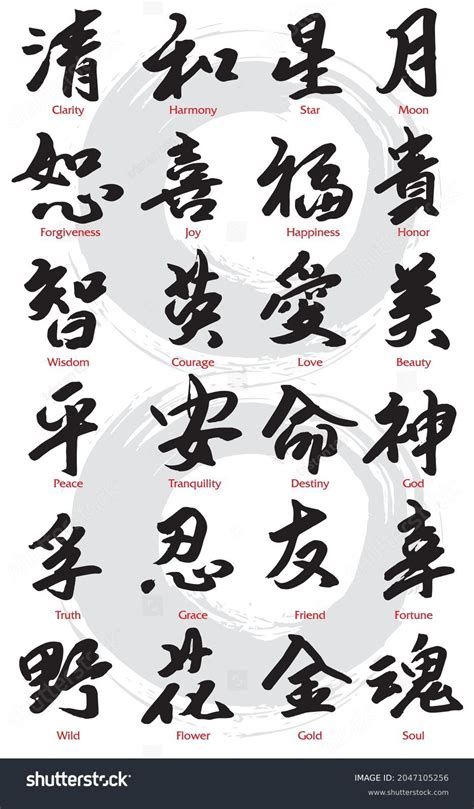 清 和 星 月
Clarity Harmony Star Moon
恕 喜 福 貴
Forgiveness Joy Happiness Honor
智 英 愛 美
Wisdom Courage Love Beauty
平 安 命 神
Peace Tranquility Destiny God
孚 忍 友 幸
Truth Grace Friend Fortune
野 花 金 魂
Wild Flower Gold Soul
shutterstock
IMAGE ID: 2047105256
www.shutterstock.com